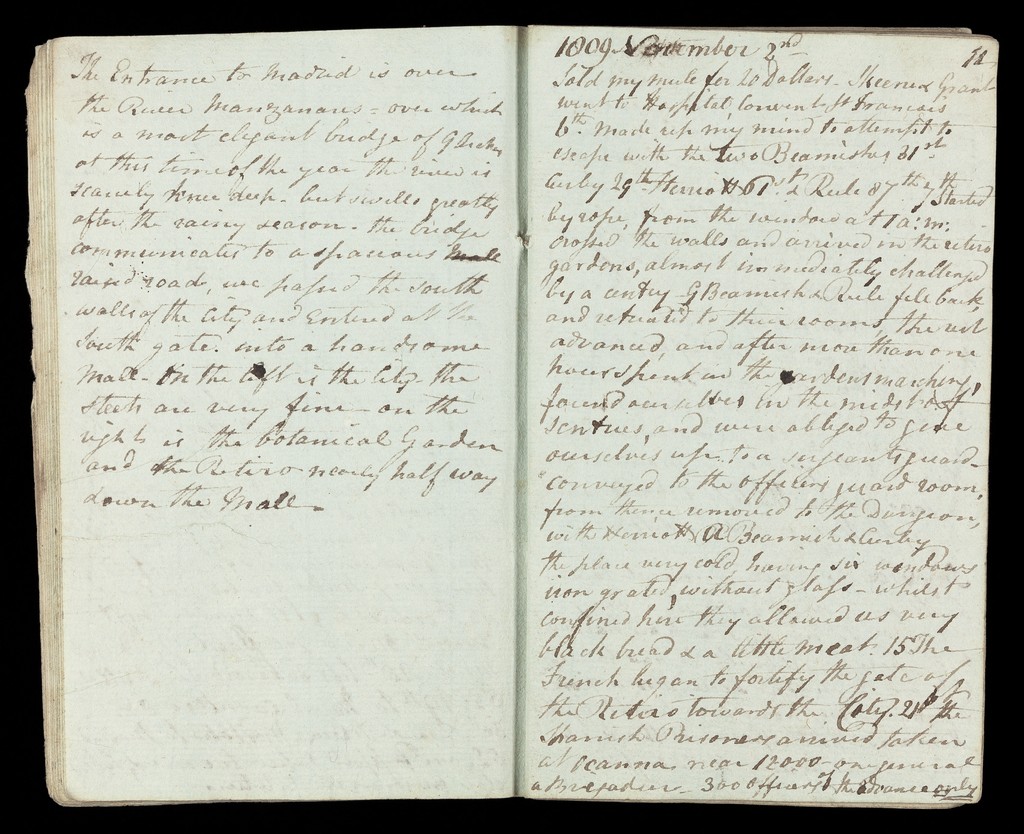 The Entrance to Madrid is over
the River Manzanares - over which
is a most elegant bridge of 9 Arches
at this time of the year the river is
scarcely knee deep - but swells greatly
after the rainy season - the bridge
communicates to a spacious Mall
raised road, we passed the South
walls of the City and Entered at the
South gate. into a handsome
Mall - On the left is the City - the
steets are very fine - on the
right is the botanical Garden
and the Retiro nearly half way
down the Mall -
1809 November 2nd
Sold my mule for 20 Dollars - Skeene & Grant
went to Hospital Convent St Francois
6th. Made up my mind to attempt to
escape with the two Beamishes 31st
Curby 29th Herriott 61st & Rule 87th 7th Started
by rope, from the window at 1 a:m:
crossed the walls and arrived in the retiro
gardens, almost immediately challenged
by a centry - G Beamish & Rule fell back,
and retreated to their rooms, the rest
advanced, and after more than one
hour spent in the gardens marching,
found ourselves in the midst of
sentries, and were obliged to give
ourselves up. to a sergeants guard -
conveyed to the officers guard room,
from thence removed to the Dungeon,
with Herriott A Beamish & Curby
the place very cold, having six windows
iron grated, without glass - whilst
confined here they allowed us very
black bread & a little meat. 15 The
French began to fortify the gate of
the Retiro towards the City. 21st the
Spanish Prisoners arrived taken
at Ocanna near 12000 - one general
a Brigadier - 300 officers of the advance only